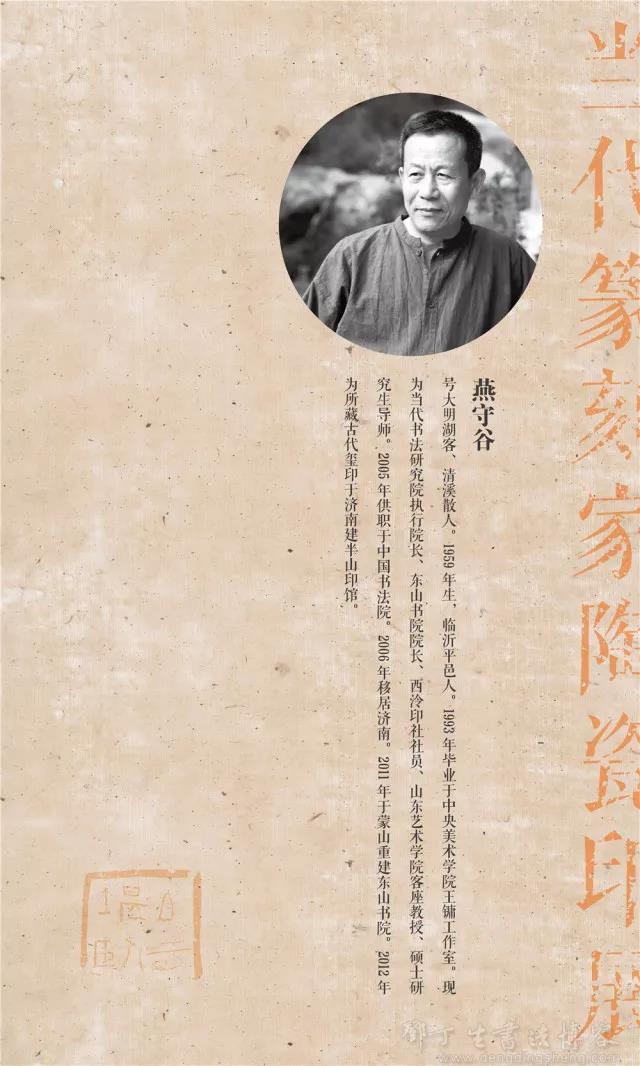 当代篆刻家陶瓷印展
燕守谷
号大明湖客、清溪散人。1959 年生，临沂平邑人。1993 年毕业于中央美术学院王镛工作室。现
为当代书法研究院执行院长、东山书院院长、西泠印社社员、山东艺术学院客座教授、硕士研
究生导师。2005 年供职于中国书法院。2006 年移居济南。2011 年于蒙山重建东山书院。2012 年
为所藏古代玺印于济南建半山印馆。
邓丁生书法博客
www.dengdingsheng.com